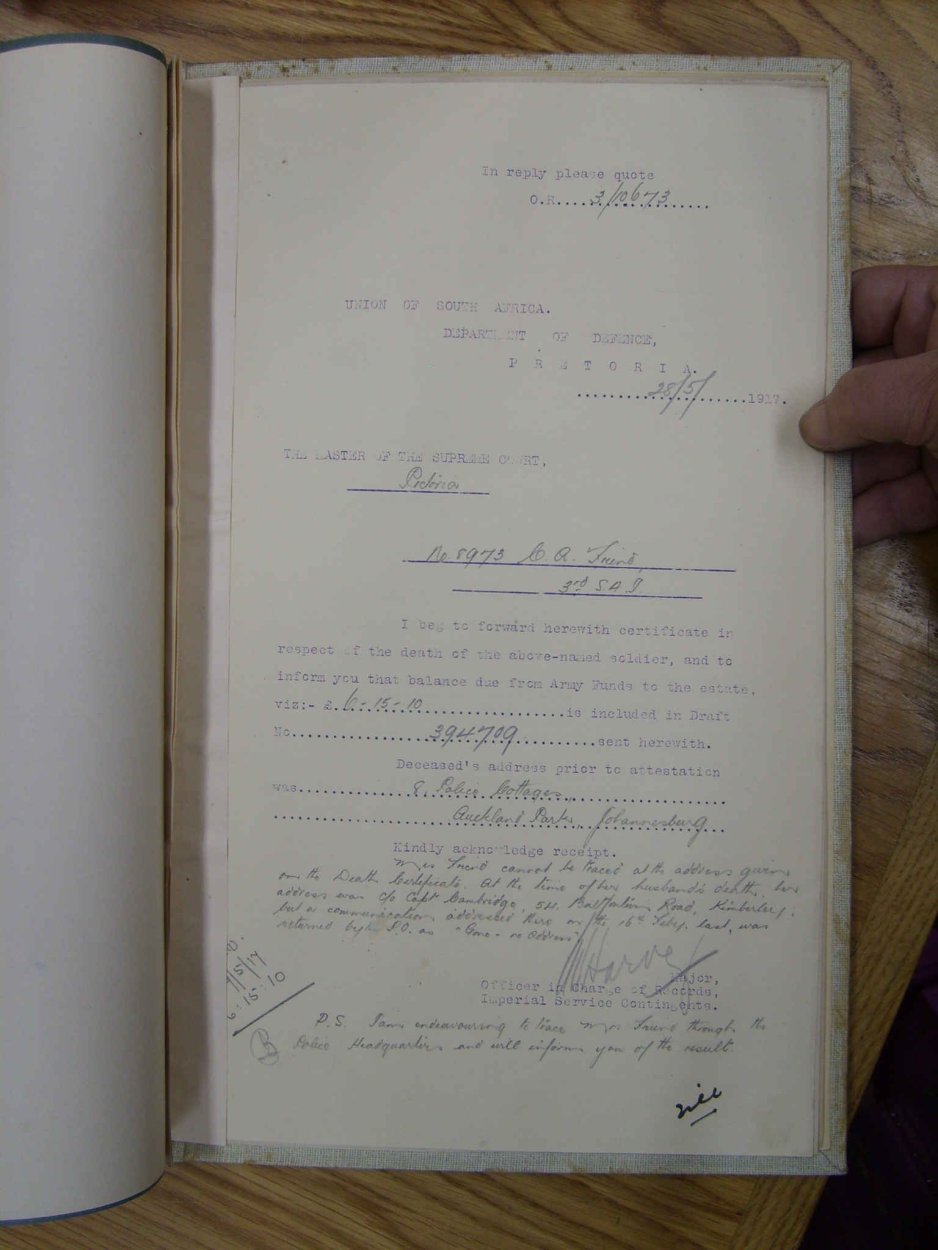 In reply please quote
O.R....3/10673..........
UNION OF SOUTH AFRICA.
DEPARTMENT OF DEFENCE,
P R E T O R I A.
..........28/5/..........1917.
THE MASTER OF THE SUPREME COURT,
Pretoria
No 8973 C. A. Friend,
3rd S A I
I beg to forward herewith certificate in
respect of the death of the above-named soldier, and to
inform you that balance due from Army Funds to the estate,
viz:- £.6-15-10..................is included in Draft
No..................394709..........sent herewith.
Deceased's address prior to attestation
was..............8 Police Cottages..................
..................Auckland Park, Johannesburg...
Kindly acknowledge receipt.
Mrs Friend cannot be traced at the address given
on the Death Certificate. At the time of her husband's death, her
address was c/o Capt Cambridge, 54, Road, Kimberley;
but a communication addressed there on the 16th Feby. last, was
returned by the P.O. as "Gone - no Address"
Harvey
Major,
Officer in Charge of Records,
Imperial Service Contingents.
7/5/17
6:15:10
P.S. I am endeavouring to trace Mrs Friend through the
Police Headquarters and will inform you of the result.